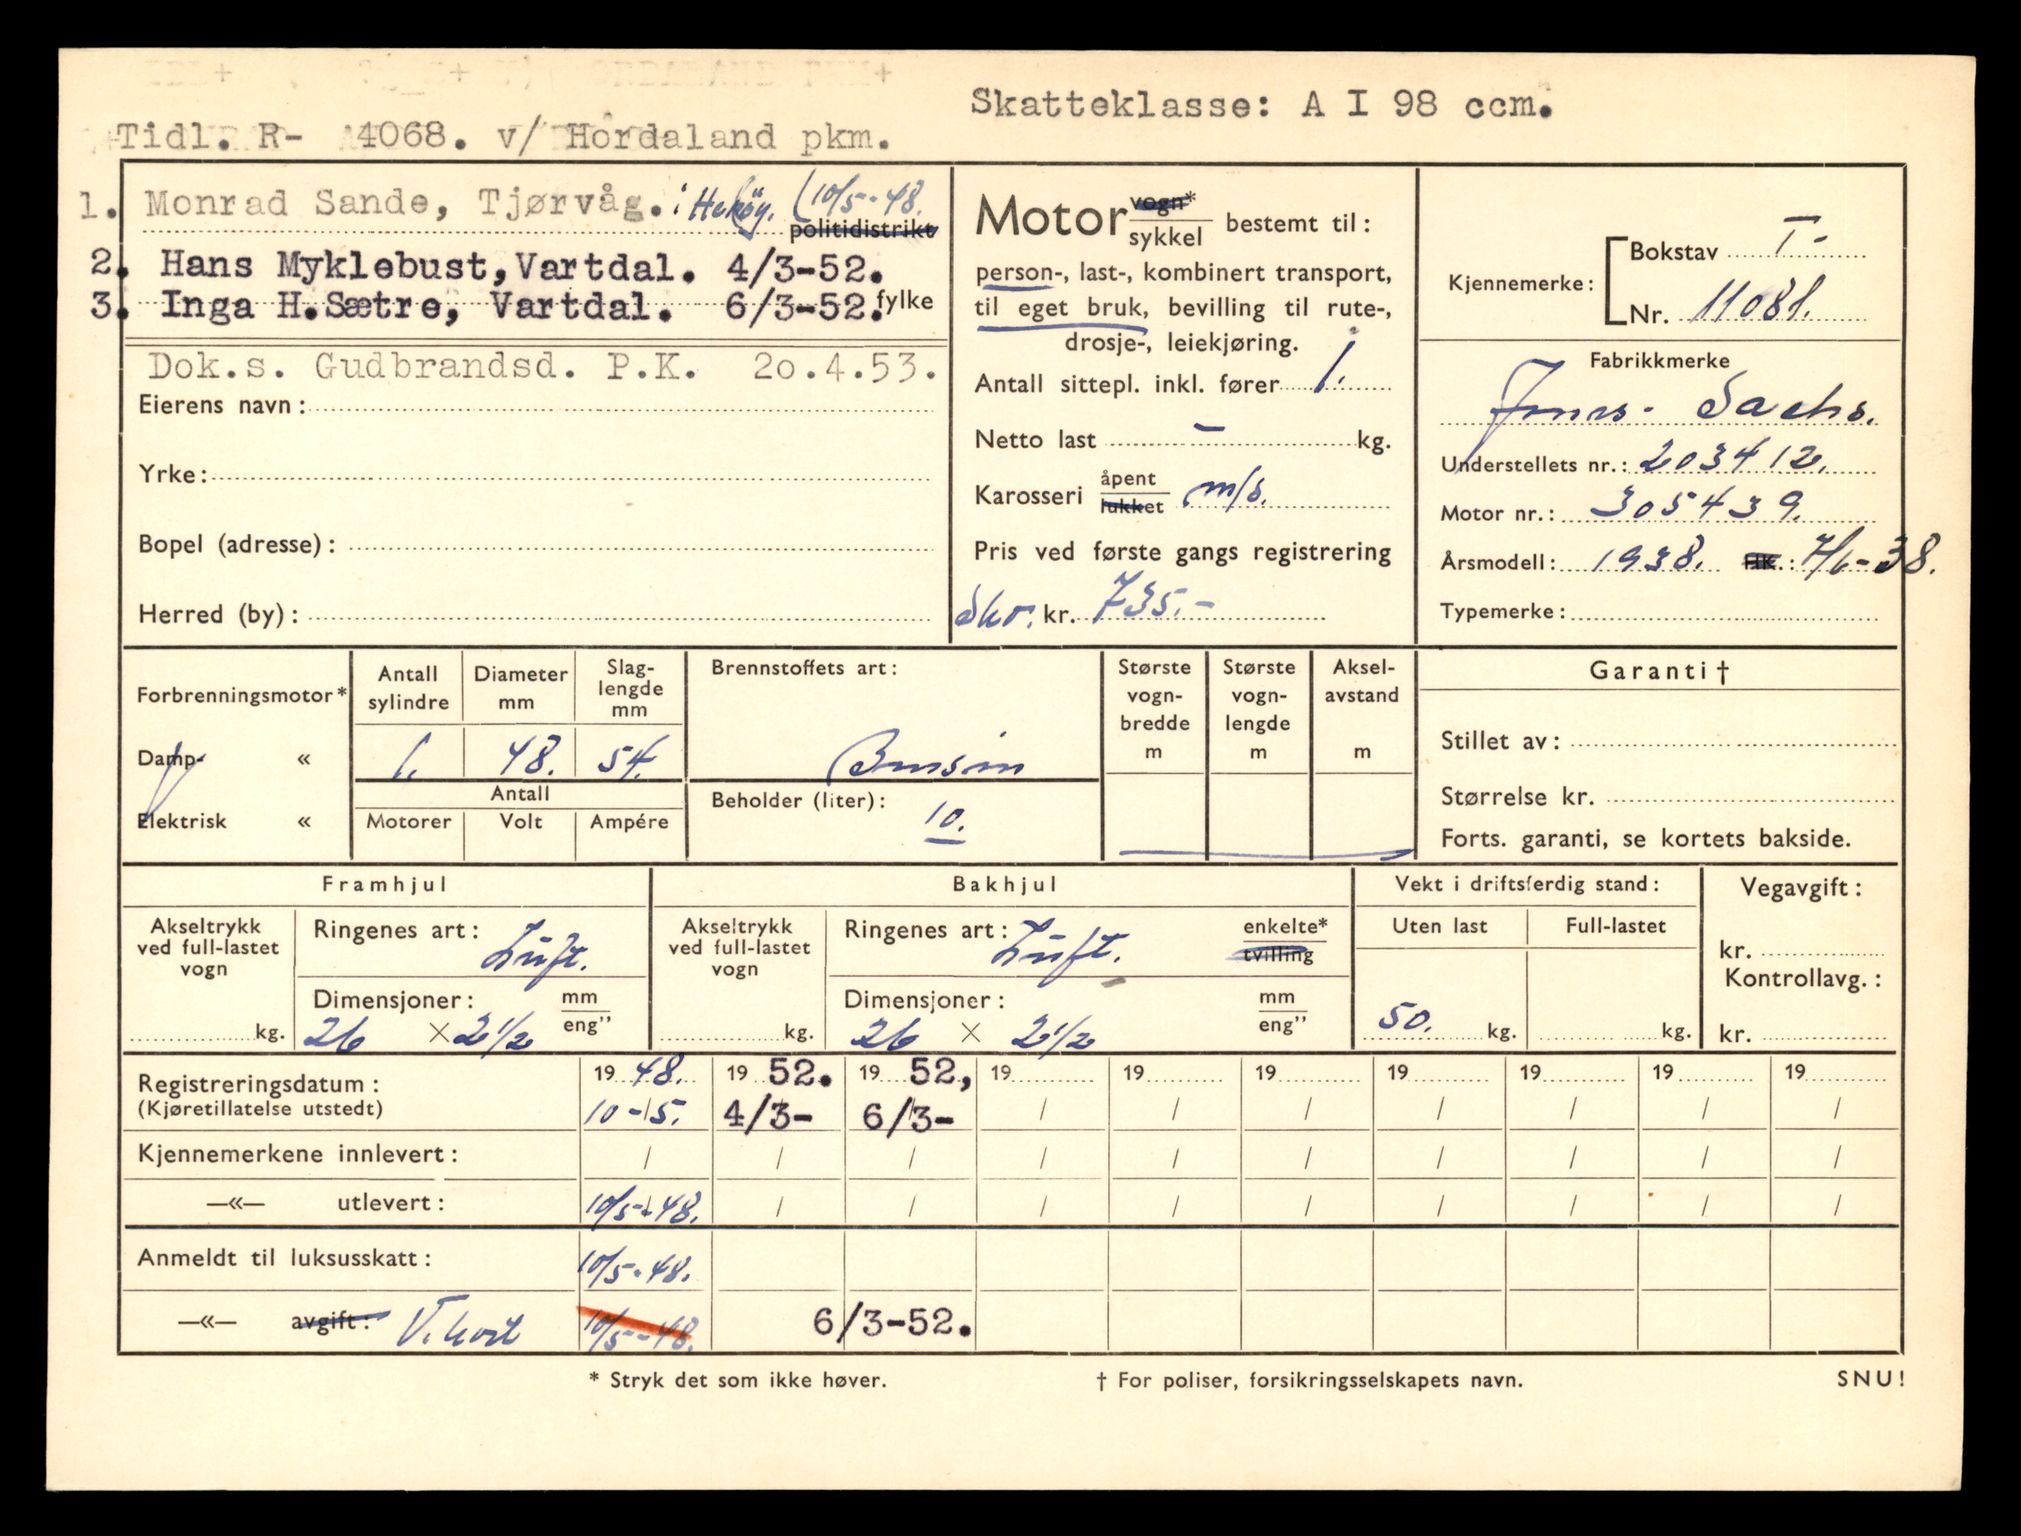 Skatteklasse: A I 98 ccm.
Tidl. R- 4068. v/ Hordaland pkm.
1. Monrad Sande, Tjørvåg. i Herøy. 10/5-48.
politidistrikt
2. Hans Myklebust, Vartdal. 4/3-52.
3. Inga H. Sætre, Vartdal. 6/3-52. fylke
Dok.s. Gudbrandsd. P.K. 20.4.53.
Eierens navn:
Yrke:
Bopel (adresse):
Herred (by):
Motor vogn* sykkel bestemt til:
person-, last-, kombinert transport,
til eget bruk, bevilling til rute-,
drosje-, leiekjøring.
Antall sittepl. inkl. fører 1.
Netto last – kg.
Karosseri åpent lukket m/s.
Pris ved første gangs registrering
Skr. kr. 735.-
Kjennemerke: Bokstav T-
Nr. 11081.
Fabrikkmerke
Sachs.
Understellets nr.: 203412.
Motor nr.: 305439.
Årsmodell: 1938. HK.: 7/6-38.
Typemerke:
Forbrenningsmotor*
Damp- «
Elektrisk «
Antall sylindre
Diameter mm
Slag-lengde mm
1. 48. 54.
Antall
Motorer Volt Ampére
Brennstoffets art:
Bensin
Beholder (liter):
10.
Største vogn-bredde m
Største vogn-lengde m
Aksel-avstand m
Garanti †
Stillet av:
Størrelse kr.
Forts. garanti, se kortets bakside.
Framhjul
Akseltrykk ved full-lastet vogn
kg.
Ringenes art: Luft.
Dimensjoner: mm eng”
26 × 2 1/2
Bakhjul
Akseltrykk ved full-lastet vogn
kg.
Ringenes art: Luft. enkelte* tvilling
Dimensjoner: mm eng”
26 × 2 1/2
Vekt i driftsferdig stand:
Uten last Full-lastet
50. kg. kg.
Vegavgift:
kr.
Kontrollavg.:
kr.
Registreringsdatum: 19 48. 19 52. 19 52, 19 19 19 19 19 19 19
(Kjøretillatelse utstedt) 10-5. 4/3- 6/3- / / / / / / /
Kjennemerkene innlevert: / / / / / / / / / /
—«— utlevert: 10/5-48. / / / / / / / / /
Anmeldt til luksusskatt: 10/5-48.
—«— avgift: V.kort 10/5-48. 6/3-52.
* Stryk det som ikke høver.
† For poliser, forsikringsselskapets navn.
SNU!